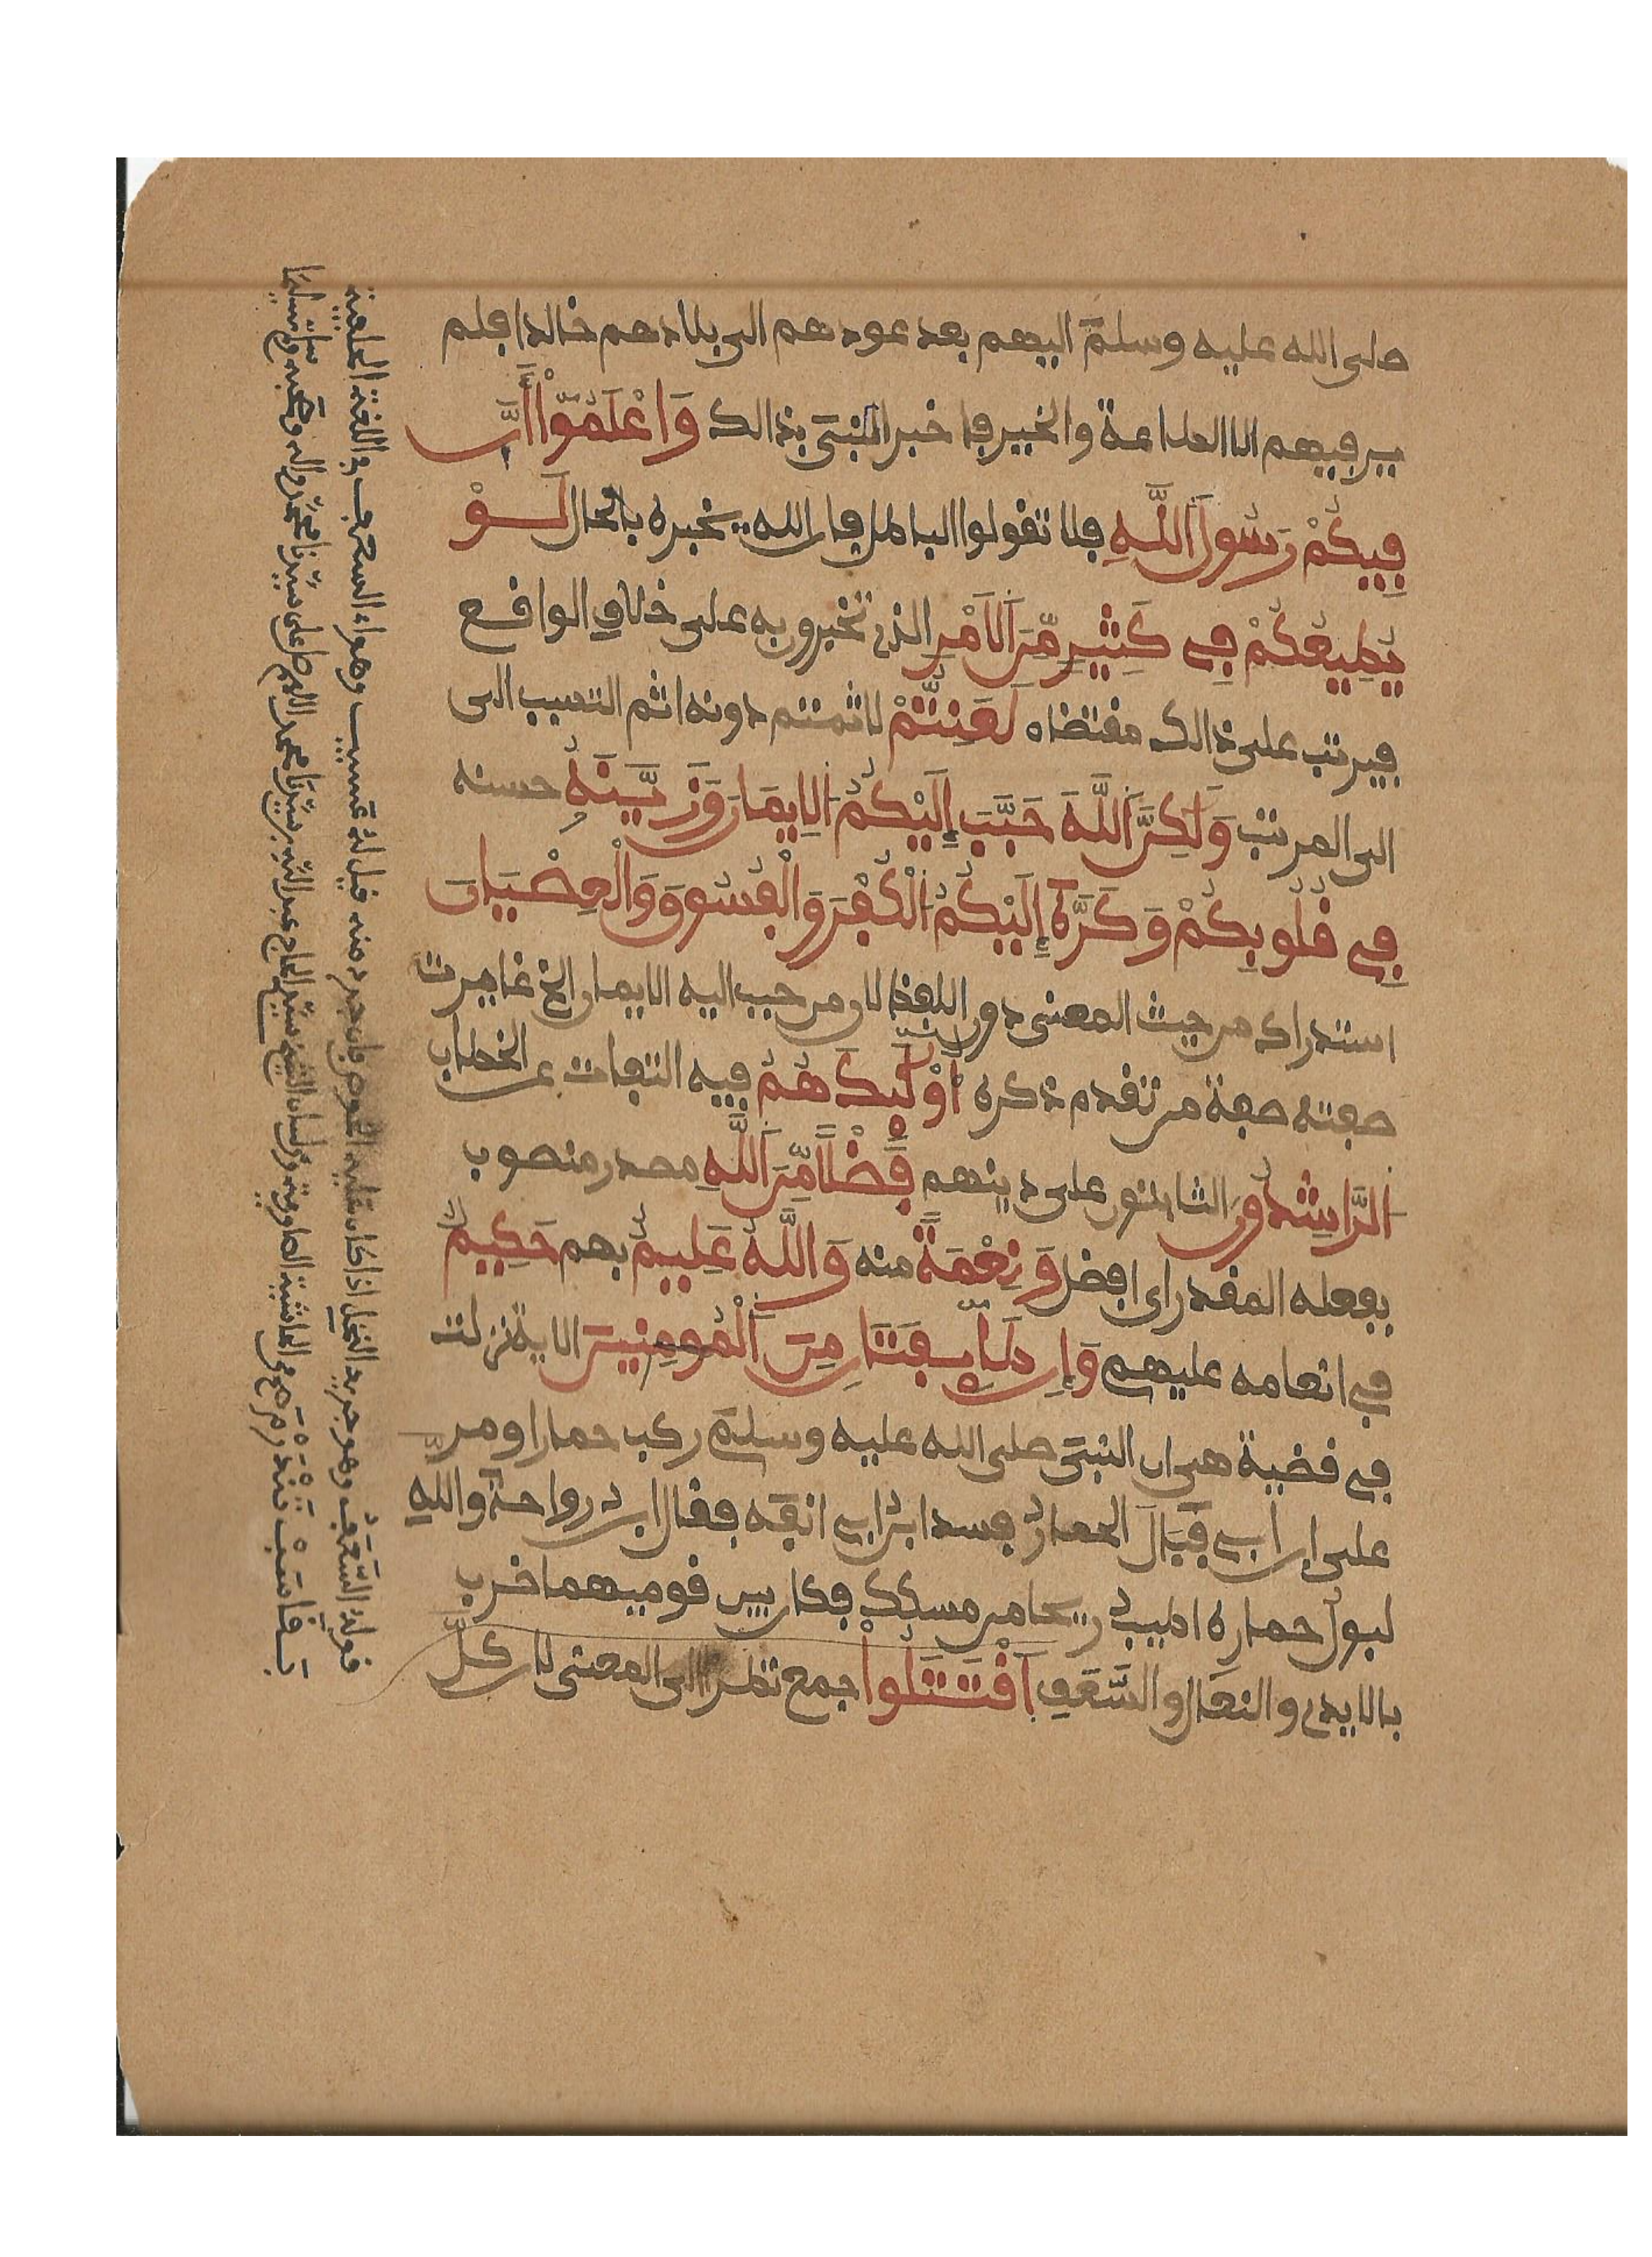 صلى الله عليه وسلم اليهم بعد عودهم الى بلادهم خالدا فلم
ير فيهم الا الطاعة والخير فاخبر النبي بذالك وَاعْلَمُوٓاْ أَنَّ
فِيكُمْ رَسُولَ اَللَّهِ فلا تقولوا الباطل فان الله يخبره بالحال لَوْ
يُطِيعُكُمْ فِي كَثِيرٍ مِّنَ اَلاَمْرِ الذي تخبرون به على خلاف الواقع
فيرتب على ذالك مقتضاه لَعَنِتُّمْ لاثمتم دونه اثم التسبب الى
الى المرتب وَلَكِنَّ اَللَّهَ حَبَّبَ إِلَيْكُمُ اَلِايمَانَ وَزَيَّنَهُ حسنه
فِي قُلُوبِكُمْ وَكَرَّهَ إِلَيْكُمُ اَلْكُفْرَ وَالْفُسُوقَ وَالْعِصْيَانَ
استدراك من حيث المعنى دون اللفظ لان من حبب اليه الايمان الخ غايرت
صفته صفة من تقدم ذكره أُوْلَٰٓئِكَ هُمُ فيه التفات عن الخطاب
اَلرَّاشِدُونَ الثابتون على دينهم فَضْلاً مِّنَ اَللَّهِ مصدر منصوب
بفعله المقدر اى افضل وَنِعْمَةً منه وَاللَّهُ عَلِيمٌ بهم حَكِيمٌ
في انعامه عليهم وَإِن طَآئِفَتَانِ مِنَ اَلْمُومِنِينَ الاية نزلت
في قضية هى ان النبي صلى الله عليه وسلم ركب حمارا ومر
على ابن ابي فبال الحمار فسد ابن ابي انفه فقال ابن رواحة والله
لبول حماره اطيب ريحا من مسكك فكان بين قوميهما ضرب
بالايدي والنعال والسَّعَفِ اَقْتَتَلُواْ جمع نظرا الى المعنى لان كل
قوله السَّعَف وهو جريد النخل اذا كان عليه الخوص فان جرد منه قيل له عسيب